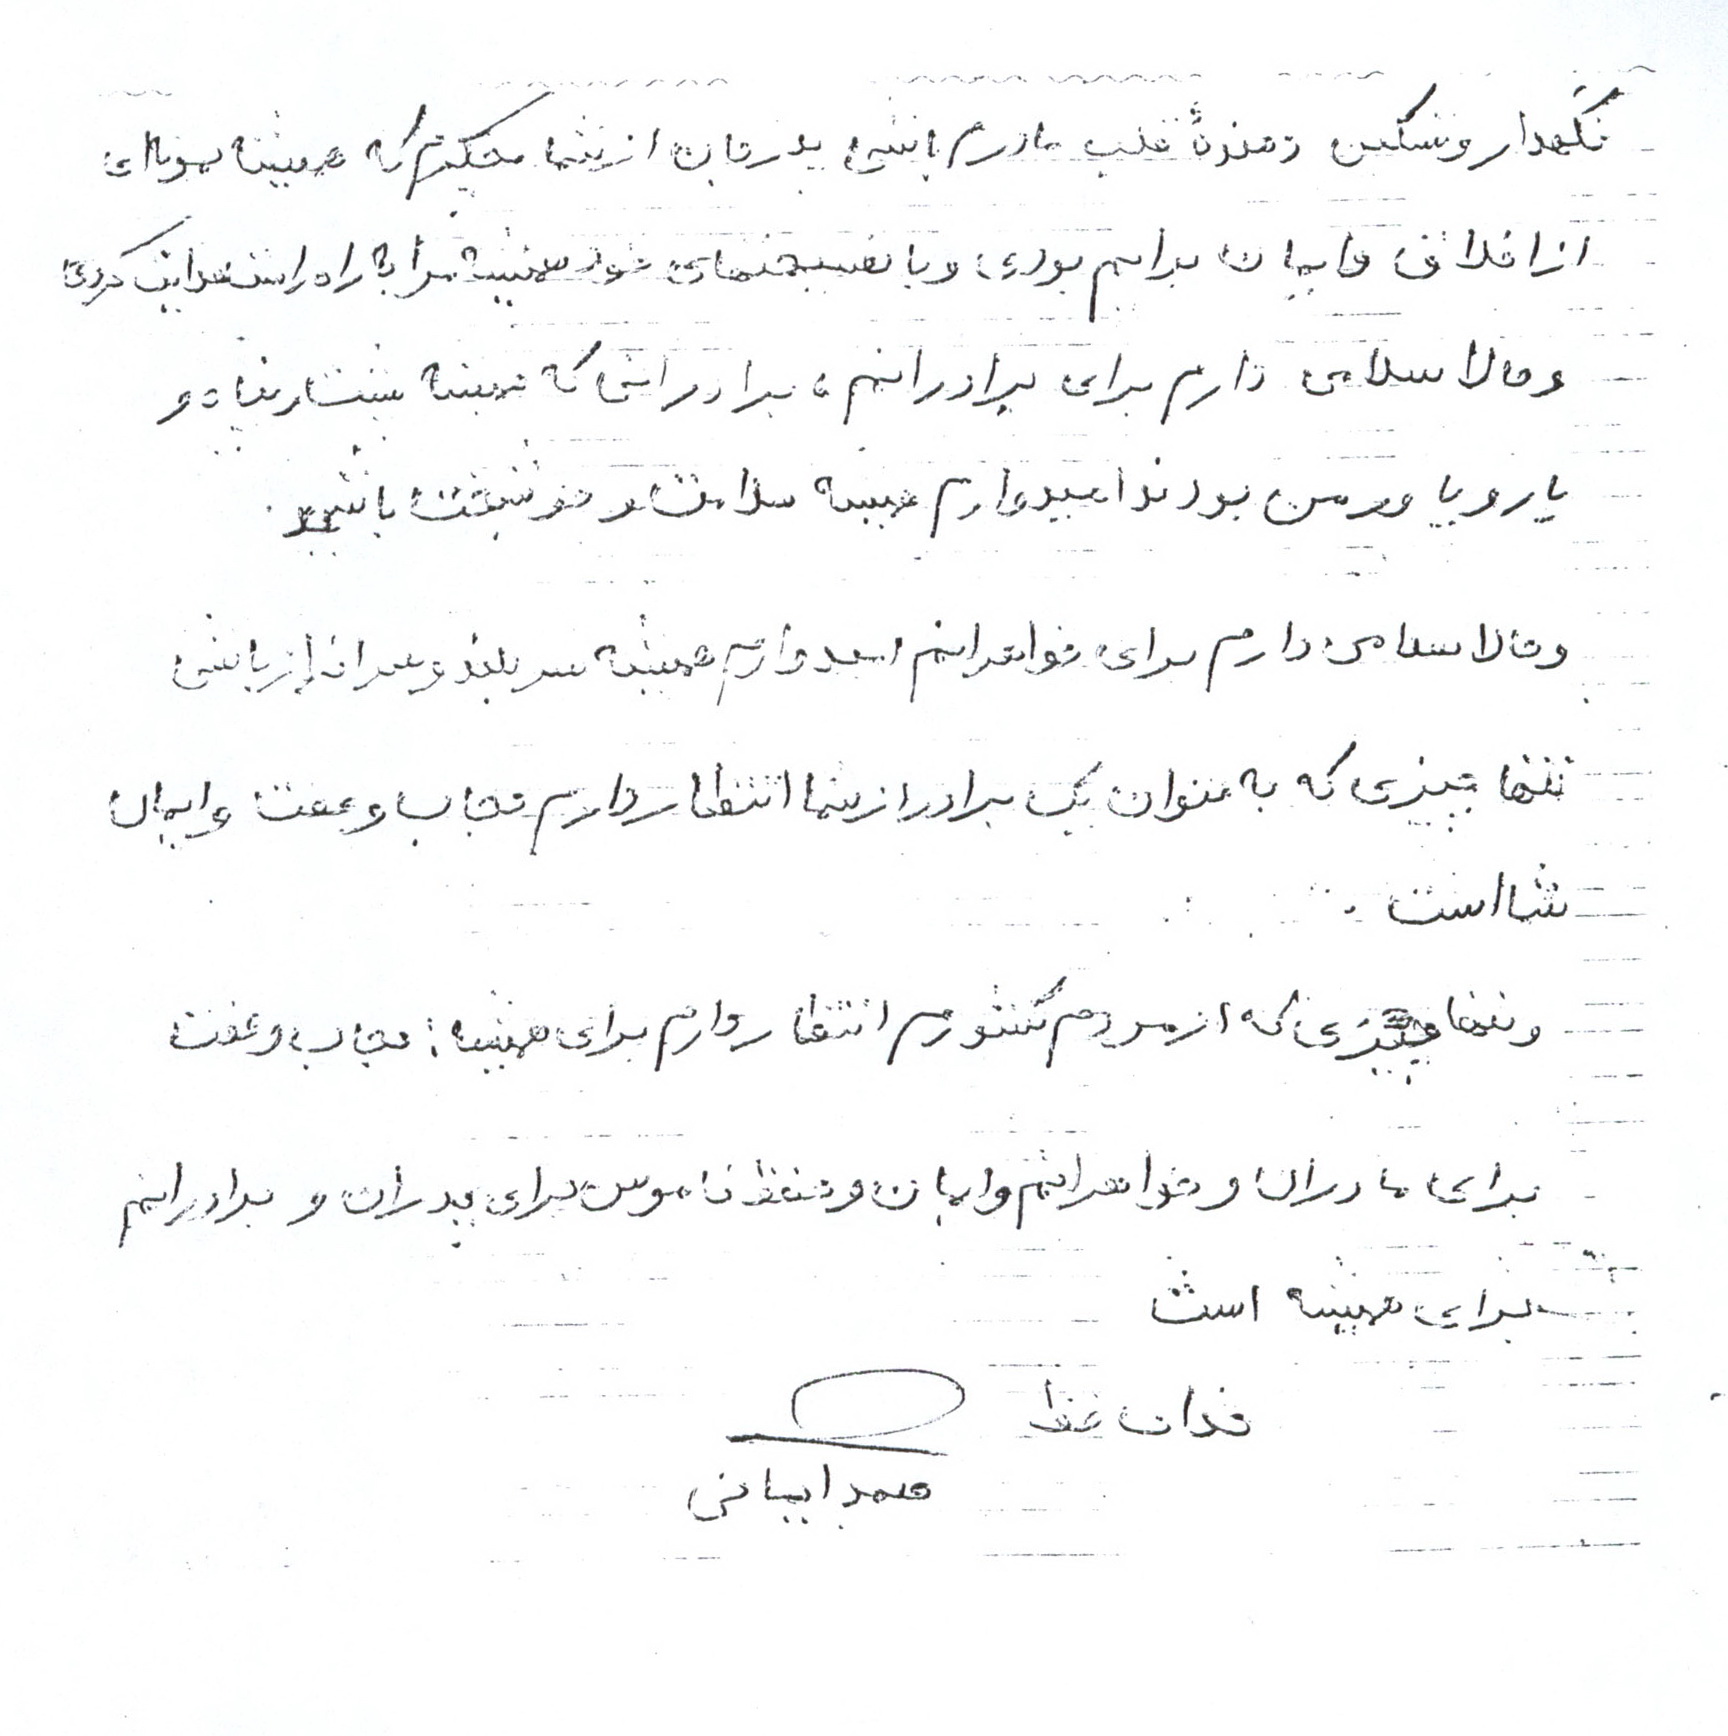 نگهدار و تسکین دهندهٔ قلب مادرم باشی پدرجان از شما متشکرم که همیشه نمونه‌ای
از اخلاق و ایمان برایم بودی و با نصیحتهای خود همیشه مرا به راه راست هدایت کردی
و حالا سلامی دارم برای برادرانم، برادرانی که همیشه پشت و پناه و
یار و یاور من بودند امیدوارم همیشه سلامت و خوشبخت باشید.
و حالا سلامی دارم برای خواهرانم امیدوارم همیشه سربلند و سرافراز باشی
تنها چیزی که به عنوان یک برادر از شما انتظار دارم حجاب و عفت و ایمان
شما است.
و تنها چیزی که از مردم کشورم انتظار دارم برای همیشه: حجاب و عفت
برای مادران و خواهرانم و ایمان و حفظ ناموس برای پدران و برادرانم
برای همیشه است
خدانحفظ